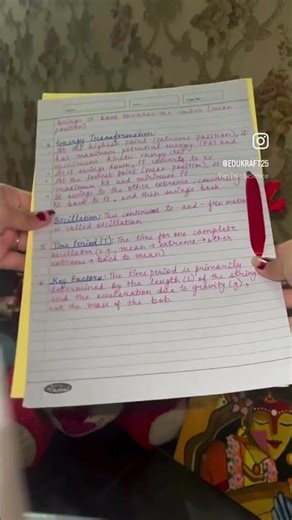 brings it back towards the centre (mean
position).
Energy Transformation:
At the highest point (extreme position), it
has maximum potential energy (PE) and
minimum kinetic energy (KE)
As it swings down, PE converts to KE.
At the lowest point (mean position), it has
maximum KE and minimum PE
It swings to the other extreme, converting
KE back to PE, and then swings back
Oscillation: The continuous to-and-fro motion
is called oscillation
5. Time Period (T): The time for one complete
oscillation (e.g., mean → extreme → other
extreme → back to mean).
6. Key Factors: The time period is primarily
determined by the length (L) of the string
and the acceleration due to gravity (g),
not the mass of the bob.
@EDUKRAFT25
Science